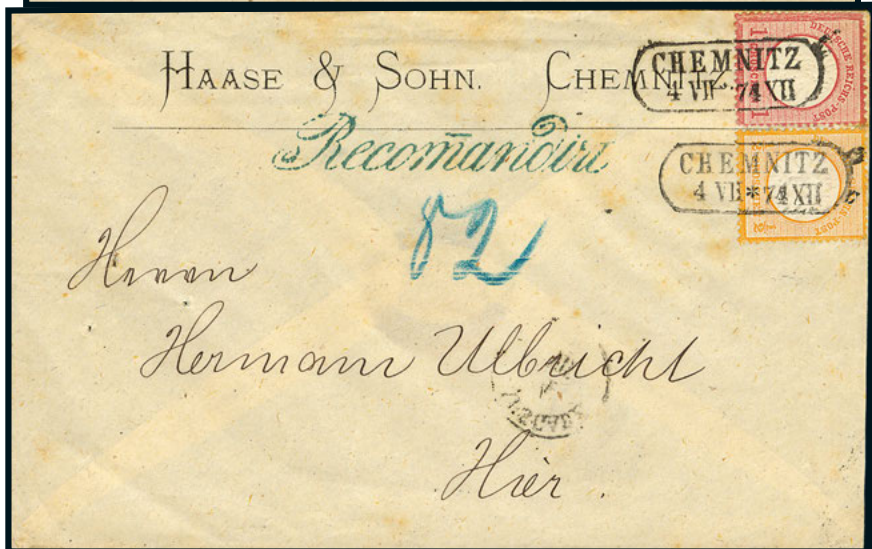 HAASE & SOHN. CHEMNITZ.
CHEMNITZ
4 VII 74 XII
Recomandirt
CHEMNITZ
4 VII * 74 XII
82
Herrn
Hermann Ulbricht
Hier.